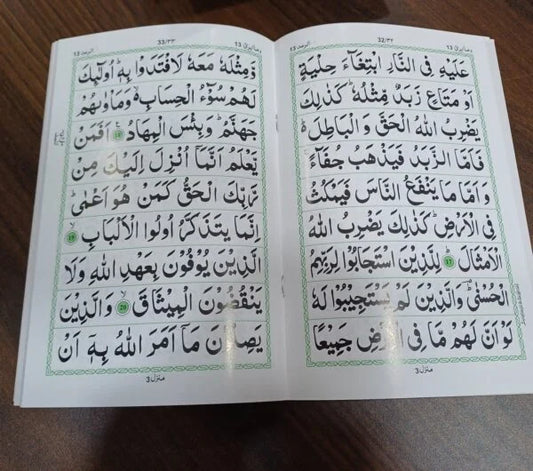 وما ابرئ 13
32/۳۲
الرعد 13
عَلَيْهِ فِى النَّارِ ابْتِغَآءَ حِلْيَةٍ
اَوْ مَتَاعٍ زَبَدٌ مِّثْلُهٗ ؕ كَذٰلِكَ
يَضْرِبُ اللّٰهُ الْحَقَّ وَ الْبَاطِلَ ؕ۬
فَاَمَّا الزَّبَدُ فَيَذْهَبُ جُفَآءً ۚ
وَ اَمَّا مَا يَنْفَعُ النَّاسَ فَيَمْكُثُ
فِى الْاَرْضِ ؕ كَذٰلِكَ يَضْرِبُ اللّٰهُ
الْاَمْثَالَ ؕ 17 لِلَّذِيْنَ اسْتَجَابُوْا لِرَبِّهِمُ
الْحُسْنٰى ؔؕ وَالَّذِيْنَ لَمْ يَسْتَجِيْبُوْا لَهٗ
لَوْ اَنَّ لَهُمْ مَّا فِى الْاَرْضِ جَمِيْعًا
منزل 3
وما ابرئ 13
33/۳۳
الرعد 13
وَّمِثْلَهٗ مَعَهٗ لَافْتَدَوْا بِهٖ ؕ اُولٰٓئِكَ
لَهُمْ سُوْٓءُ الْحِسَابِ ۙ۬ وَمَاْوٰىهُمْ
جَهَنَّمُ ؕ وَبِئْسَ الْمِهَادُ 18 اَفَمَنْ
يَّعْلَمُ اَنَّمَاۤ اُنْزِلَ اِلَيْكَ مِنْ
رَّبِّكَ الْحَقُّ كَمَنْ هُوَ اَعْمٰى ؕ
اِنَّمَا يَتَذَكَّرُ اُولُوا الْاَلْبَابِ ۙ 19
الَّذِيْنَ يُوْفُوْنَ بِعَهْدِ اللّٰهِ وَلَا
يَنْقُضُوْنَ الْمِيْثَاقَ ۙ 20 وَالَّذِيْنَ
يَصِلُوْنَ مَاۤ اَمَرَ اللّٰهُ بِهٖۤ اَنْ
منزل 3